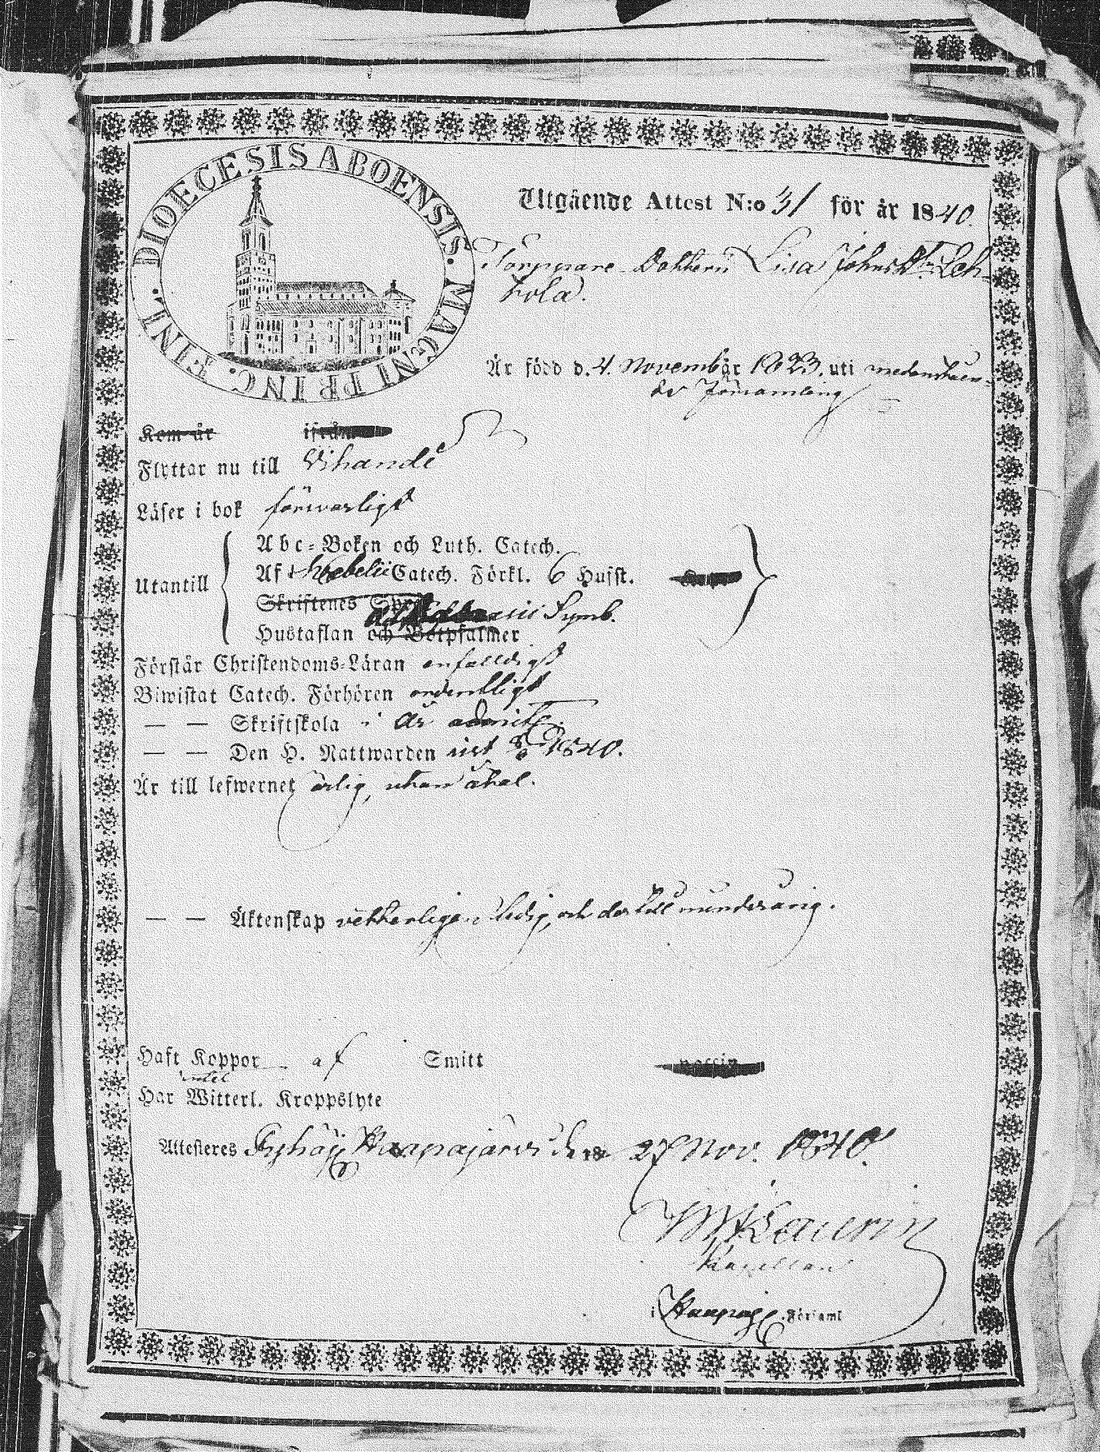 DIOECESIS ABOENSIS. MAGNI PRINC. FINL.
Utgående Attest N:o 31 för år 1840.
Torppare-Dotteren Lisa Johns Dr Leh-
tola.
Är född d. 4 Novembär 1823, uti
Församling
Kom år ifrån
Flyttar nu till Vihandi
Läser i bok förswarligt
Utantill
Abc-Boken och Luth. Catech.
Af Swebelii Catech. Förkl. 6 Hufst.
Skriftenes Spr
Symb.
Hustaflan och Botpsalmer
Förstår Christendoms-Läran enfalldigt
Biwistat Catech. Förhören ordentligt
— — Skriftskola är admit.
— — Den H. Nattwarden sist 1840.
Är till lefwernet ärlig, utan åtal.
— — Äktenskap vetterligen ledig, och dertill minderårig.
Haft Koppor af Smitt
intet
Har Witterl. Kroppslyte
Attesteres Pyhäj. Haapajärvi den 27 Nov. 1840.
Kapellan
i Haapaj. Församl